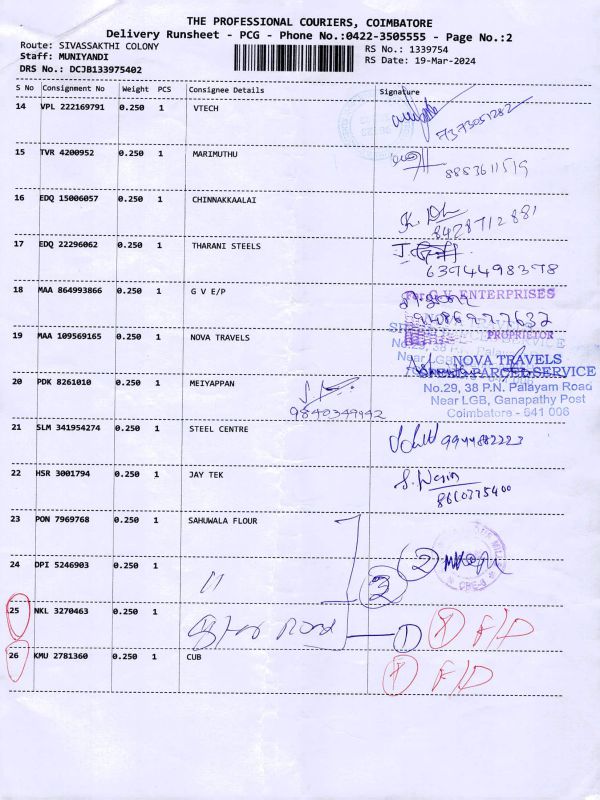 THE PROFESSIONAL COURIERS, COIMBATORE
Delivery Runsheet - PCG - Phone No.:0422-3505555 - Page No.:2
Route: SIVASSAKTHI COLONY RS No.: 1339754
Staff: MUNIYANDI RS Date: 19-Mar-2024
DRS No.: DCJB133975402
S No Consignment No Weight PCS Consignee Details Signature
14 VPL 222169791 0.250 1 VTECH
7373051282
15 TVR 4200952 0.250 1 MARIMUTHU
8883611519
16 EDQ 15006057 0.250 1 CHINNAKKAALAI
8428712881
17 EDQ 22296062 0.250 1 THARANI STEELS
6374498378
18 MAA 864993866 0.250 1 G V E/P
For G.V. ENTERPRISES
PROPRIETOR
19 MAA 109569165 0.250 1 NOVA TRAVELS
No.29, 38 P.N. Palayam
Near LGB
NOVA TRAVELS
PARCEL SERVICE
No.29, 38 P.N. Palayam Road
Near LGB, Ganapathy Post
Coimbatore - 641 006
20 PDK 8261010 0.250 1 MEIYAPPAN
9840349942
21 SLM 341954274 0.250 1 STEEL CENTRE
9944882223
22 HSR 3001794 0.250 1 JAY TEK
8610375400
23 PON 7969768 0.250 1 SAHUWALA FLOUR
24 DPI 5246903 0.250 1
11
3
2
CBE-6
25 NKL 3270463 0.250 1
Road
1
F/D
26 KMU 2781360 0.250 1 CUB
F/D